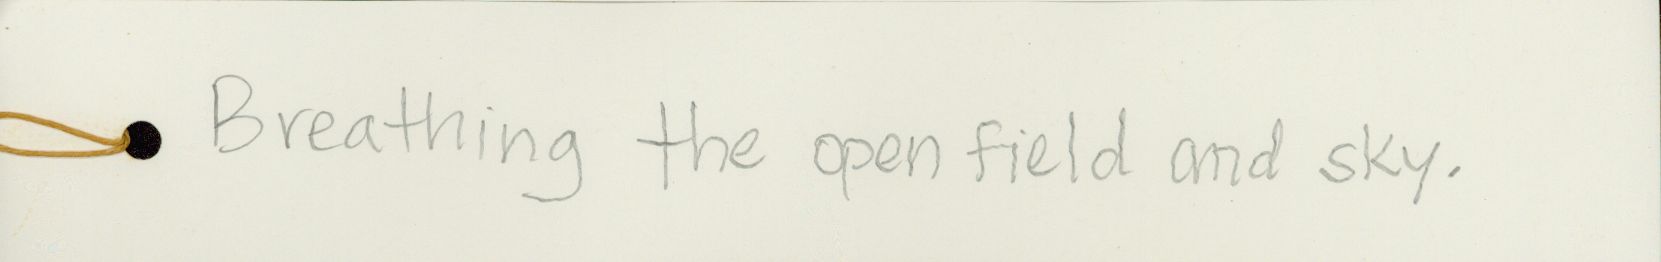 Breathing the open field and sky.